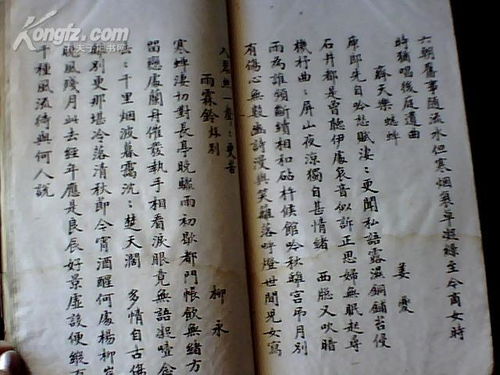 Kongfz.com
六朝舊事隨流水但寒烟衰草凝綠至今商女時
時猶唱後庭遺曲
齊天樂 蟋蟀 姜夔
庾郎先自吟愁賦淒：更聞私語露濕銅鋪苔侵
石井都是曾聽伊處哀音似訴正思婦無眠起尋
機杼曲：屏山夜涼獨自甚情緒 西窗又吹暗
雨為誰頻斷續相和砧杵候館吟秋離宮吊月別
有傷心無數豳詩漫與笑籬落呼燈世間兒女寫
入琴絲一聲：更苦
雨霖鈴 秋別 柳永
寒蟬淒切對長亭晚驟雨初歇都門帳飲無緒方
留戀處蘭舟催發執手相看淚眼竟無語凝噎念
去：千里烟波暮靄沉：楚天闊 多情自古傷
離別更那堪冷落清秋節今宵酒醒何處楊柳岸
曉風殘月此去經年應是良辰好景虛設便縱有
千種風流待與何人說